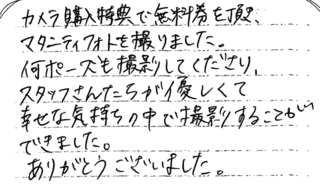 カメラ購入特典で無料券を頂き、
マタニティフォトを撮りました。
何ポーズも撮影してくださり、
スタッフさんたちが優しくて
幸せな気持ちの中で撮影することが
できました。
ありがとうございました。